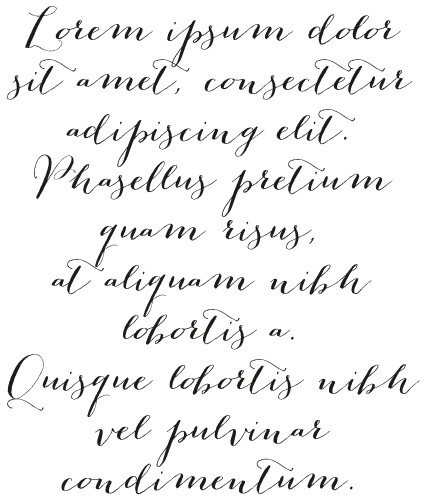 Lorem ipsum dolor
sit amet, consectetur
adipiscing elit.
Phasellus pretium
quam risus,
at aliquam nibh
lobortis a.
Quisque lobortis nibh
vel pulvinar
condimentum.